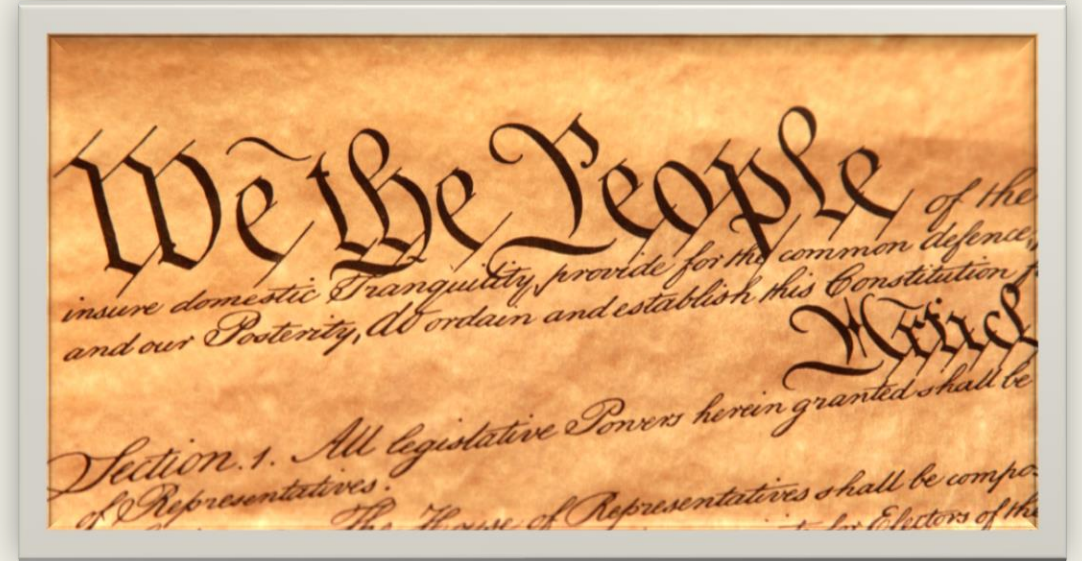 We the People of the
insure domestic Tranquility, provide for the common defence,
and our Posterity, do ordain and establish this Constitution f
Articl
Section. 1. All legislative Powers herein granted shall be
of Representatives.
The House of Representatives shall be compo
for Electors of the